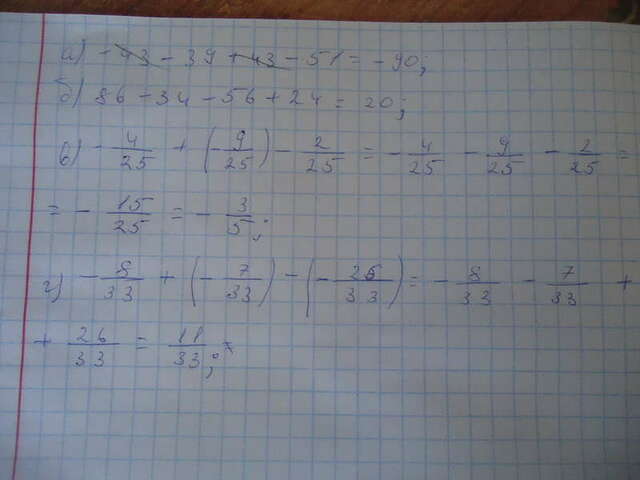 а) -43 - 39 + 43 - 51 = -90;
б) 86 - 34 - 56 + 24 = 20;
в) - 4/25 + (- 9/25) - 2/25 = - 4/25 - 9/25 - 2/25 =
= - 15/25 = - 3/5;
г) - 8/33 + (- 7/33) - (- 26/33) = - 8/33 - 7/33 +
+ 26/33 = 11/33;